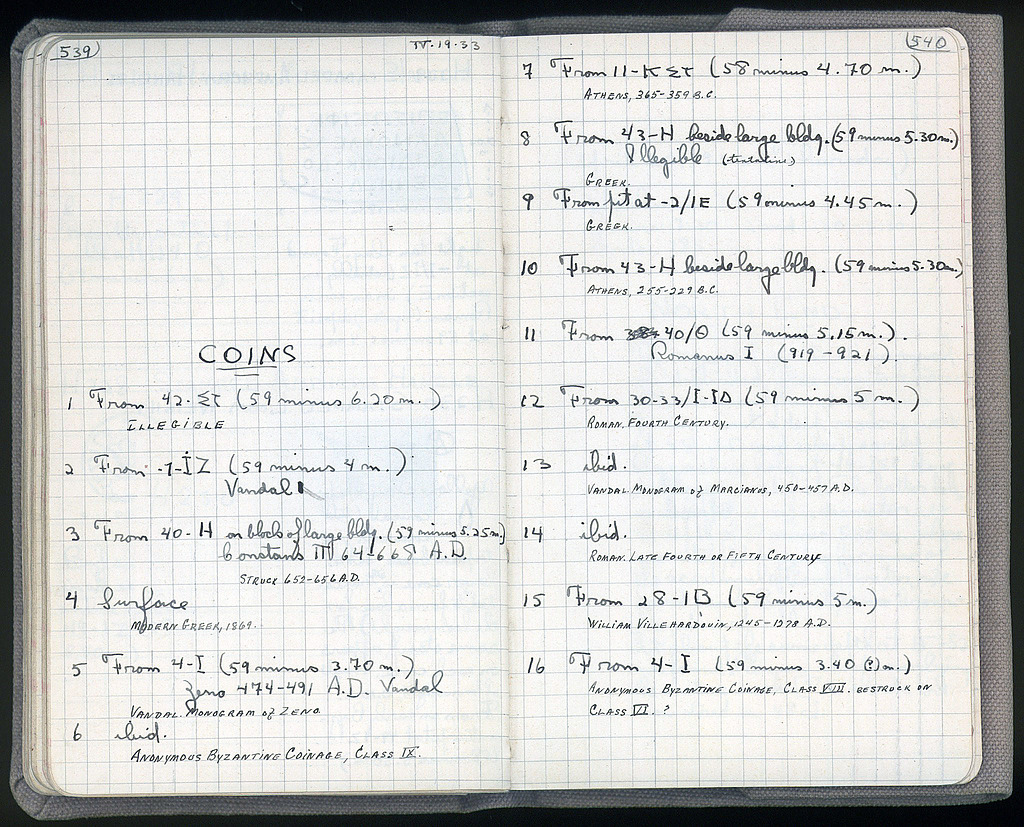 539
IV·19·33
COINS
1 From 42-ΣΤ (59 minus 6.20 m.)
ILLEGIBLE
2 From -7-ΪΖ (59 minus 4 m.)
Vandal
3 From 40-H on blocks of large bldg. (59 minus 5.25 m.)
Constans III 641-668 A.D.
STRUCK 652-656 A.D.
4 Surface
MODERN GREEK, 1869.
5 From 4-I (59 minus 3.70 m.)
Zeno 474-491 A.D. Vandal
VANDAL. MONOGRAM of ZENO.
6 ibid.
ANONYMOUS BYZANTINE COINAGE, CLASS IX.
540
7 From 11-K ΣΤ (58 minus 4.70 m.)
ATHENS, 365-359 B.C.
8 From 43-H beside large bldg. (59 minus 5.30 m.)
Illegible (tentative)
GREEK.
9 From pit at -2/IE (59 minus 4.45 m.)
GREEK.
10 From 43-H beside large bldg. (59 minus 5.30 m.)
ATHENS, 255-229 B.C.
11 From 40/Θ (59 minus 5.15 m.).
Romanus I (919-921).
12 From 30-33/I-IΔ (59 minus 5 m.)
ROMAN. FOURTH CENTURY.
13 ibid.
VANDAL. MONOGRAM of MARCIANUS, 450-457 A.D.
14 ibid.
ROMAN. LATE FOURTH OR FIFTH CENTURY
15 From 28-IB (59 minus 5 m.)
WILLIAM VILLEHARDOUIN, 1245-1278 A.D.
16 From 4-I (59 minus 3.40 (?) m.)
ANONYMOUS BYZANTINE COINAGE, CLASS VIII. RESTRUCK ON
CLASS VI. ?